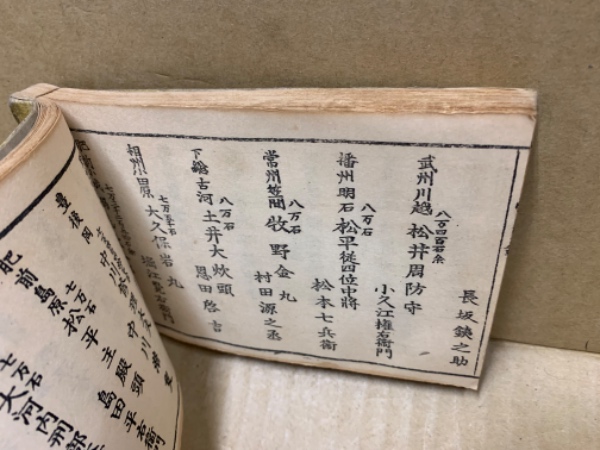 長坂鋏之助
武州川越 八万四百石余 松井周防守
小久江権右衛門
播州明石 八万石 松平従四位中將
松本七兵衛
常州笠間 八万石 牧野金丸
村田源之丞
下総古河 八万石 土井大炊頭
恩田啓吾
相州小田原 大久保岩丸
豊後岡
中川
肥前島原 七万石 松平主殿頭
島田平右衛
七万石 大河内刑部